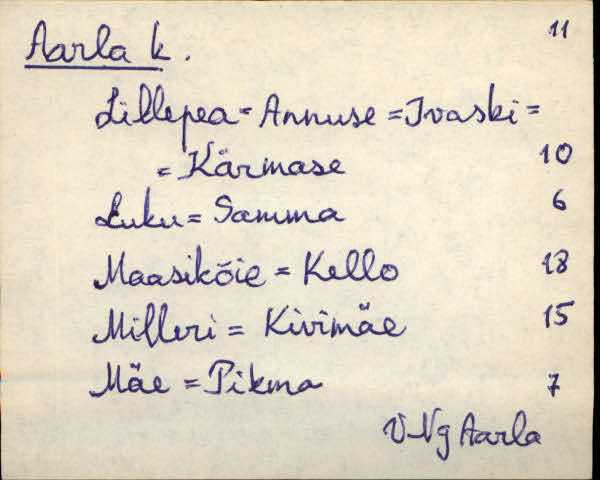 11
Aarla k.
Lillepea = Annuse = Ivaski =
= Kärmase 10
Luku = Samma 6
Maasikõie = Kello 18
Milleri = Kivimäe 15
Mäe = Pikma 7
V-Ng Aarla